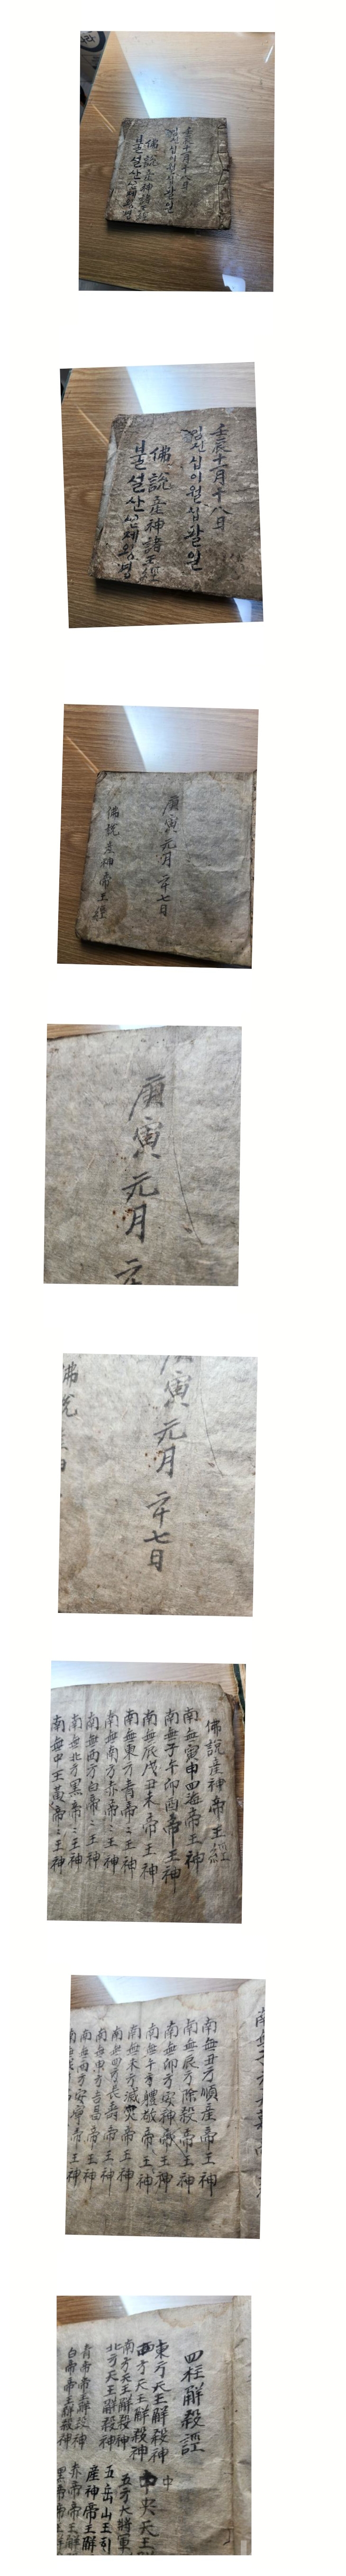 壬辰十二月十八日
임진십이월십팔일
佛說産神諸王經
불설산신제왕경
壬辰十二月十八日
임진십이월십팔일
佛說産神諸王經
불설산신제왕경
庚寅元月二十七日
佛說産神帝王經
庚寅元月二
寅元月二十七日
佛說
佛說産神帝王經
南無寅申四海帝王神
南無子午卯酉帝王神
南無辰戌丑未帝王神
南無東方青帝帝王神
南無南方赤帝ミ王神
南無西方白帝ミ王神
南無北方黑帝ミ王神
南無中王黃帝ミ王神
南無丑方順産帝王神
南無辰方除殺帝王神
南無卯方安神帝王神
南無午方體敬帝王神
南無未方滅災帝王神
南無四方長壽帝王神
南無申方吉昌帝王神
南無酉方安寧帝王神
四柱解殺經
東方天王解殺神
西方天王解殺神
南方天王解殺神
北方天王解殺神
青帝帝王解殺神
白帝帝王解殺神
中
中央天王
五方大將軍
五岳山王
産神帝王解
赤帝帝王解
黑帝帝王